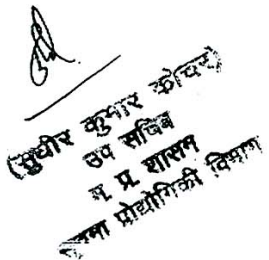 (सुधीर कुमार कोचर)
उप सचिव
म. प्र. शासन
सूचना प्रोद्योगिकी विभाग